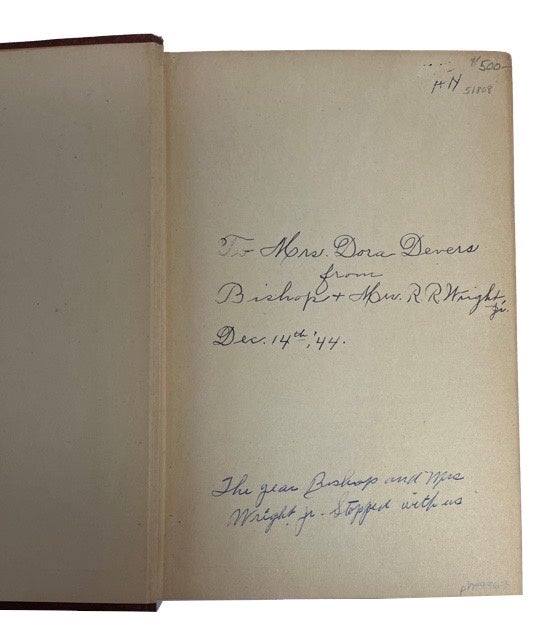 500-
HN 51808
To Mrs. Dora Devers
from
Bishop + Mrs. R R Wright, Jr.
Dec. 14th, '44.
The year Bishop and Mrs
Wright, jr. Stopped with us